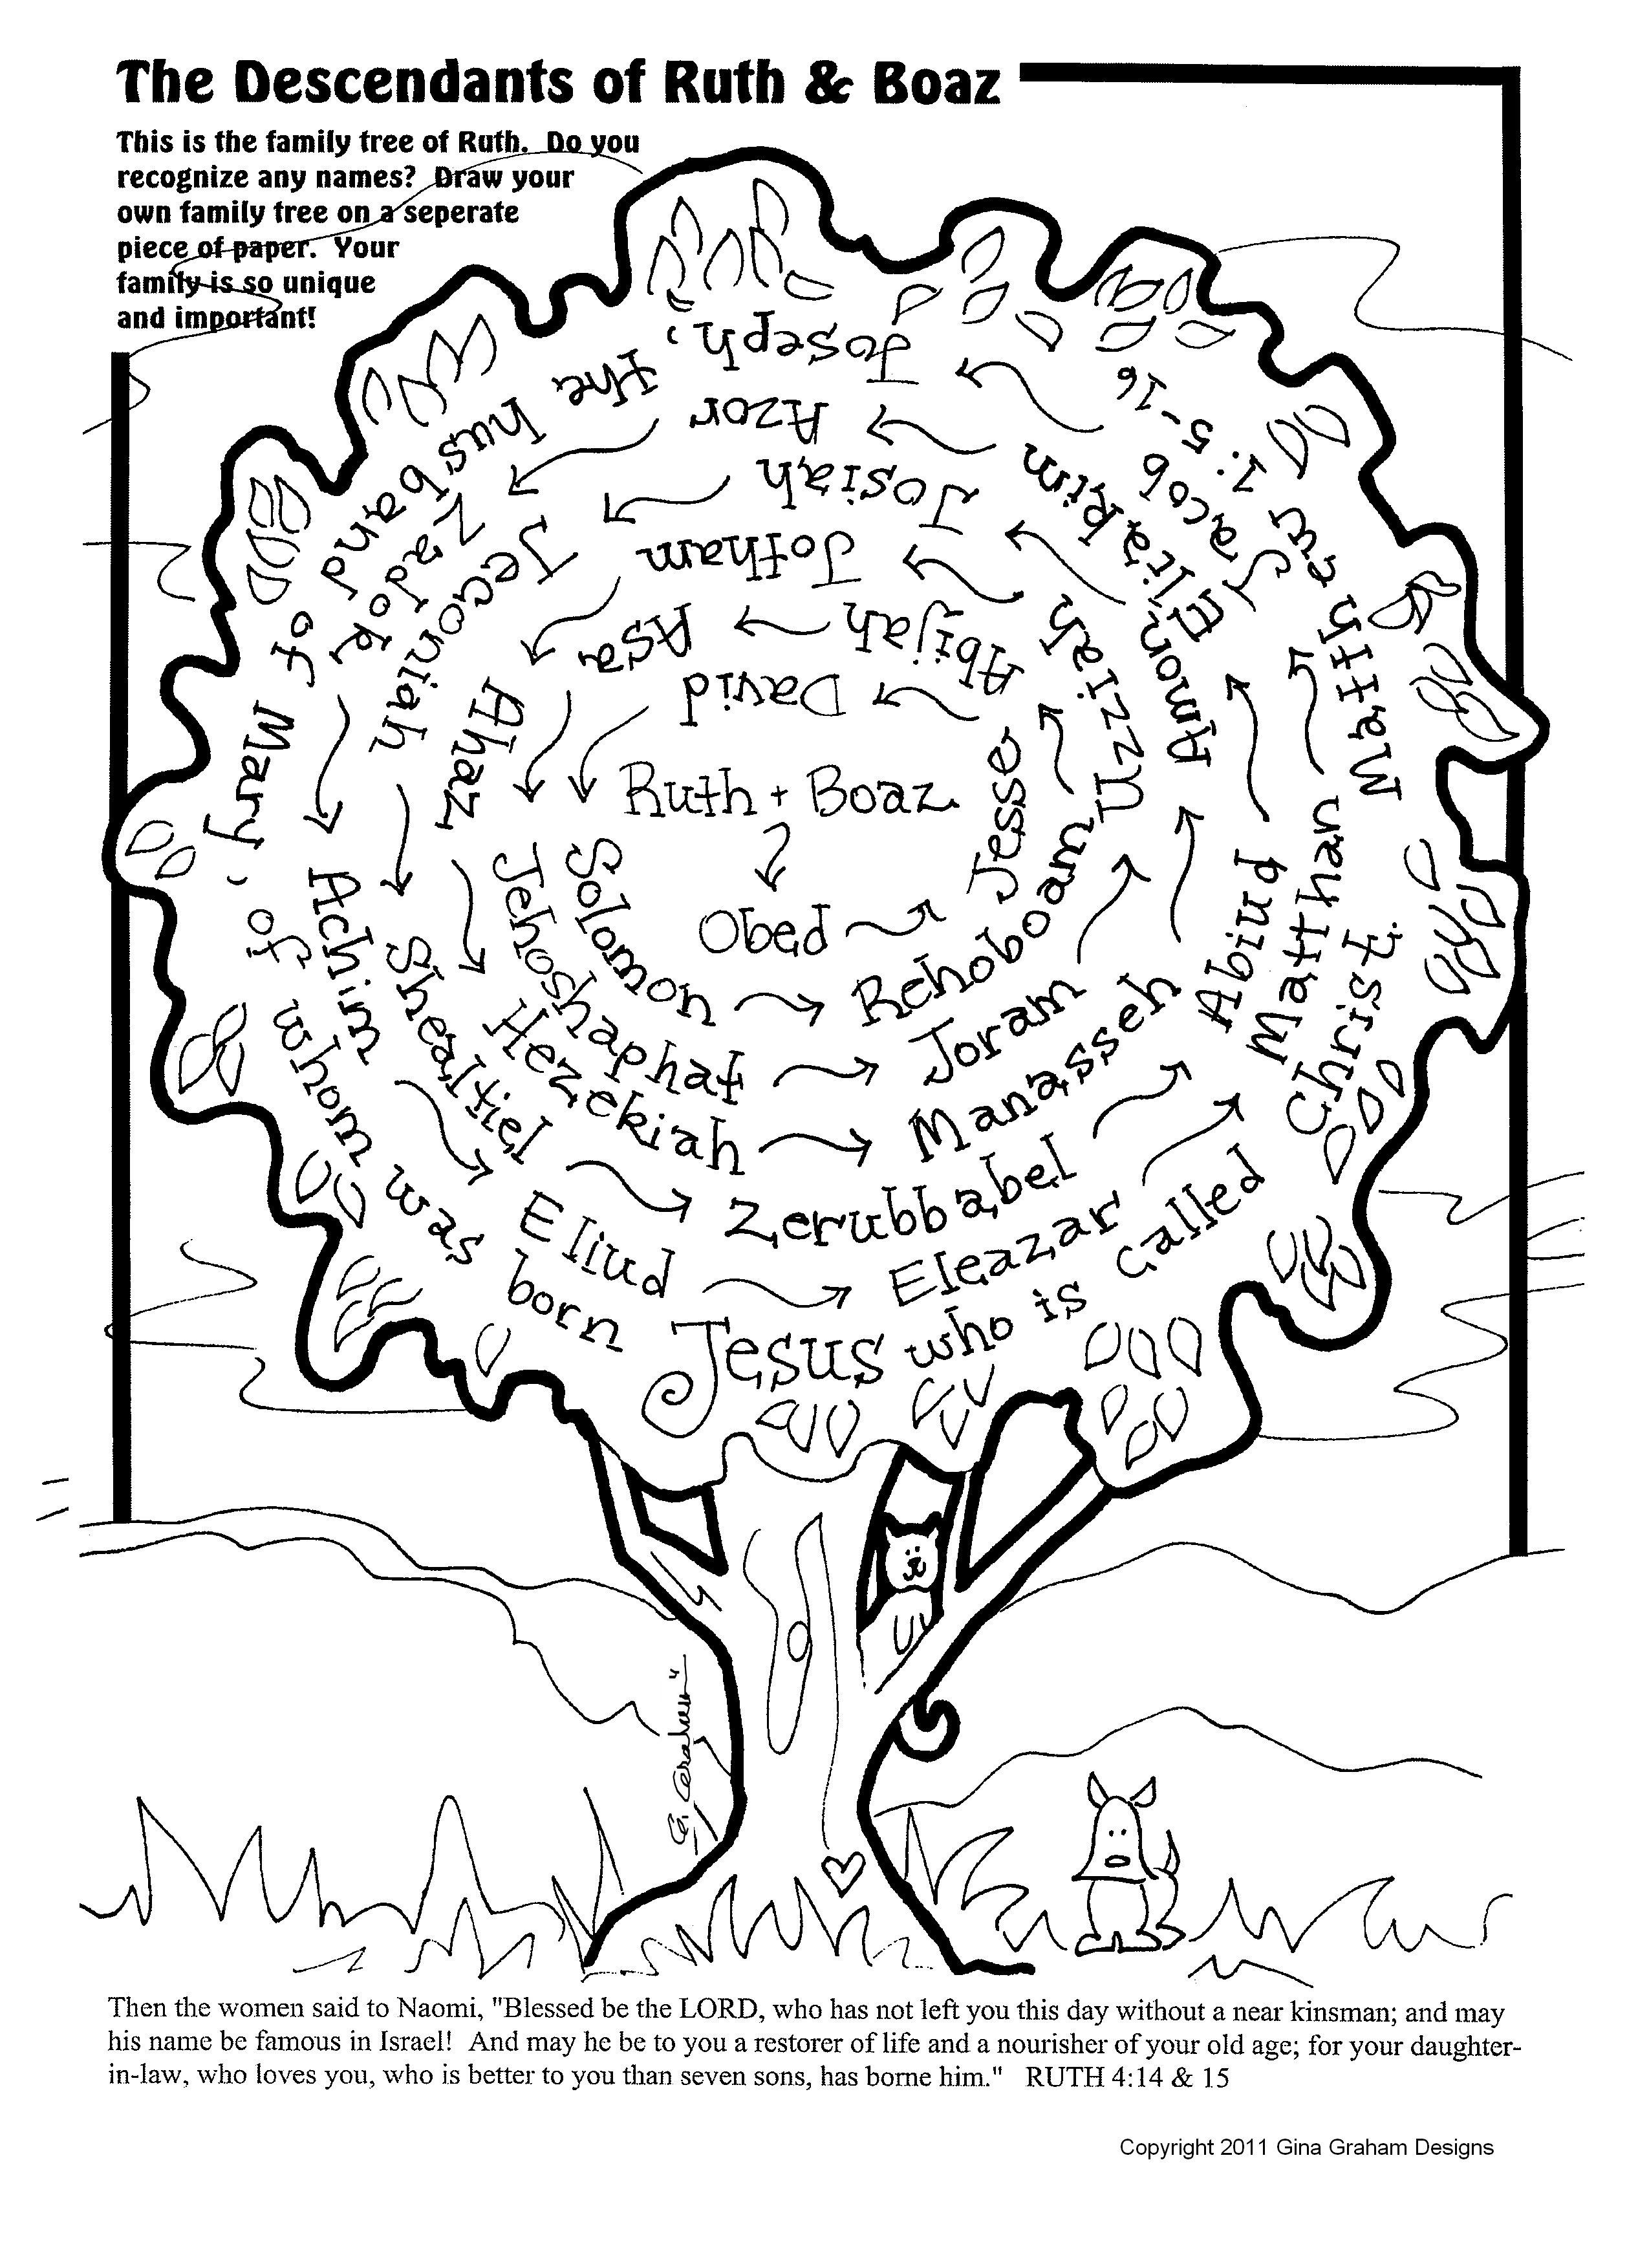 The Descendants of Ruth & Boaz
This is the family tree of Ruth. Do you
recognize any names? Draw your
own family tree on a seperate
piece of paper. Your
family is so unique
and important!
Ruth + Boaz
Obed
Jesse
David
Solomon
Rehoboam
Abijah
Asa
Jehoshaphat
Joram
Uzziah
Jotham
Ahaz
Hezekiah
Manasseh
Amon
Josiah
Jeconiah
Shealtiel
Zerubbabel
Abiud
Eliakim
Azor
Zadok
Achim
Eliud
Eleazar
Matthan
Jacob
Joseph, the husband of Mary, of whom was born Jesus who is called Christ.
Matthew 1:5-16
G. Graham
Then the women said to Naomi, "Blessed be the LORD, who has not left you this day without a near kinsman; and may
his name be famous in Israel! And may he be to you a restorer of life and a nourisher of your old age; for your daughter-
in-law, who loves you, who is better to you than seven sons, has borne him." RUTH 4:14 & 15
Copyright 2011 Gina Graham Designs